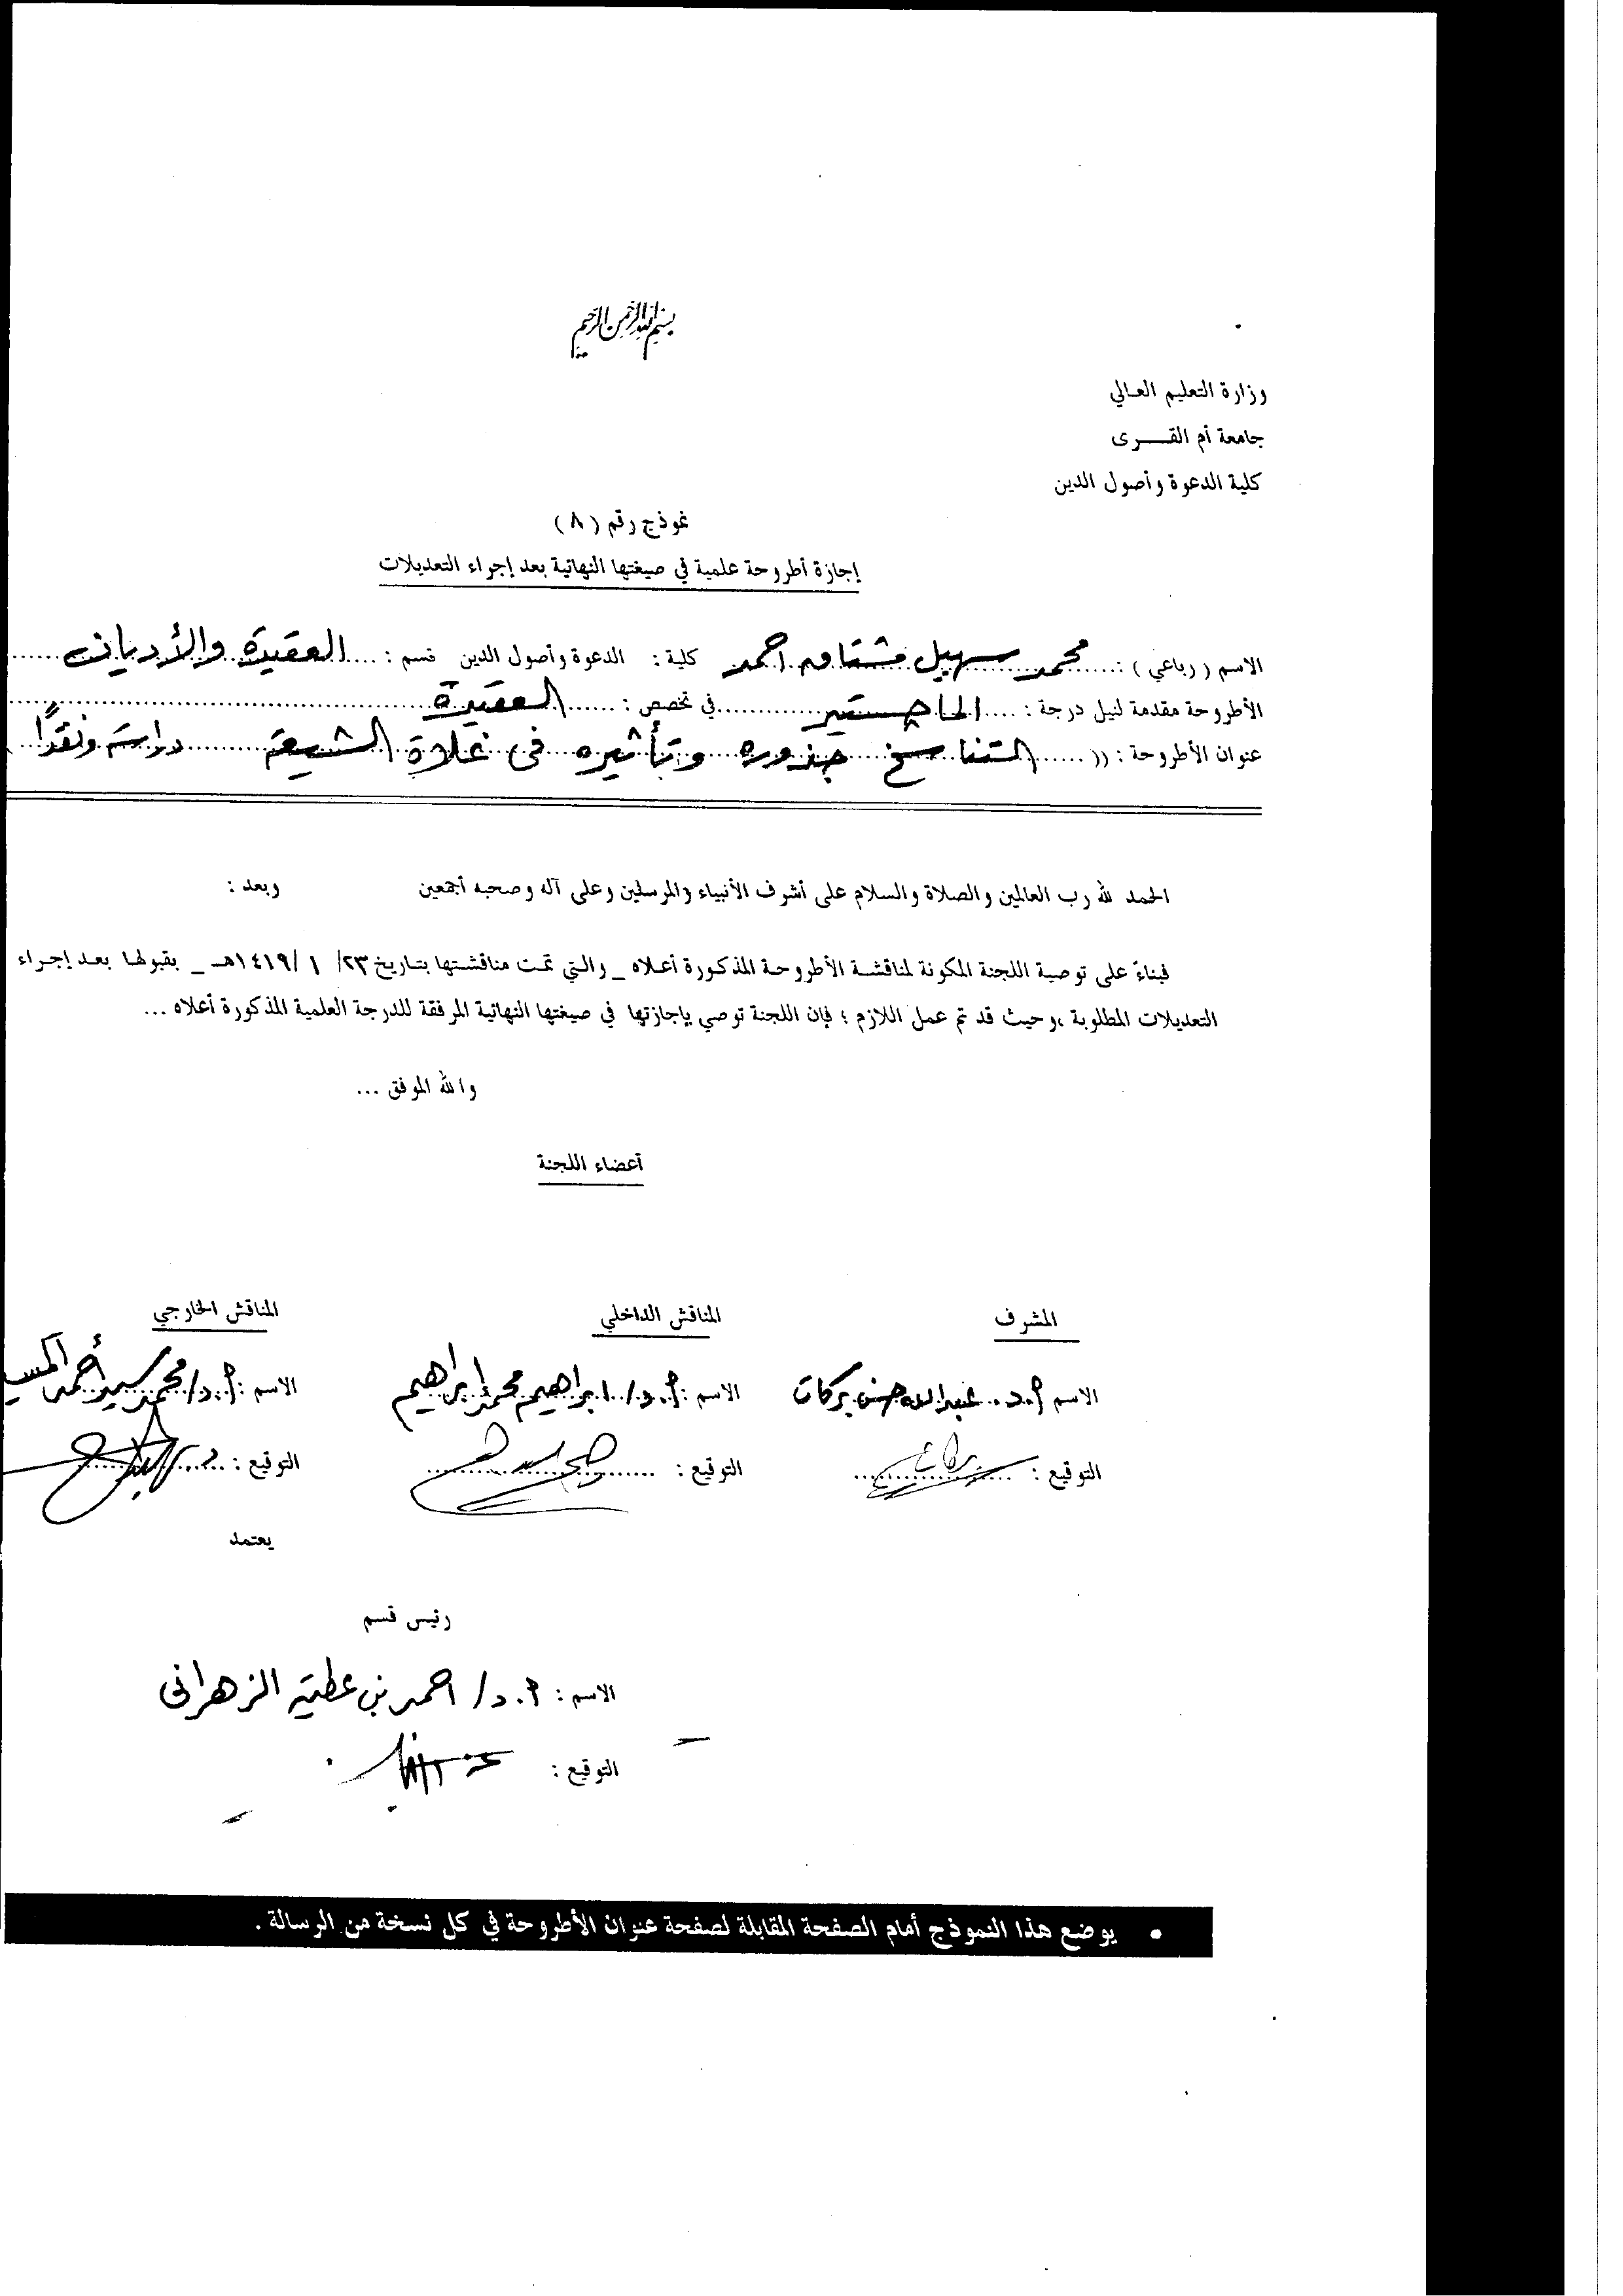 بسم الله الرحمن الرحيم
وزارة التعليم العالي
جامعة أم القـــرى
كلية الدعوة وأصول الدين
نموذج رقم ( ٨ )
إجازة أطروحة علمية في صيغتها النهائية بعد إجراء التعديلات
الاسم ( رباعي ) : محمد سهيل مشتاق احمد كلية : الدعوة وأصول الدين قسم : العقيدة والأديان
الأطروحة مقدمة لنيل درجة : الماجستير في تخصص : العقيدة
عنوان الأطروحة : (( التناسخ جذوره وتأثيره فى غلاة الشيعة دراسة ونقدًا
الحمد لله رب العالمين والصلاة والسلام على أشرف الأنبياء والمرسلين وعلى آله وصحبه أجمعين وبعد :
فبناءً على توصية اللجنة المكونة لمناقشة الأطروحة المذكورة أعلاه _ والتي تمت مناقشتها بتاريخ ٢٣/ ١ /١٤١٩هـ _ بقبولها بعد إجراء
التعديلات المطلوبة ،وحيث قد تم عمل اللازم ؛ فإن اللجنة توصي بإجازتها في صيغتها النهائية المرفقة للدرجة العلمية المذكورة أعلاه ...
والله الموفق ...
أعضاء اللجنة
المشرف المناقش الداخلي المناقش الخارجي
الاسم أ.د. عبدالله حسن بركات الاسم : أ.د/ ابراهيم محمد ابراهيم الاسم : أ.د/ محمد سيد أحمد المسير
التوقيع : التوقيع : التوقيع :
يعتمد
رئيس قسم
الاسم : أ.د/ احمد بن عطية الزهرانى
التوقيع :
• يوضع هذا النموذج أمام الصفحة المقابلة لصفحة عنوان الأطروحة في كل نسخة من الرسالة .